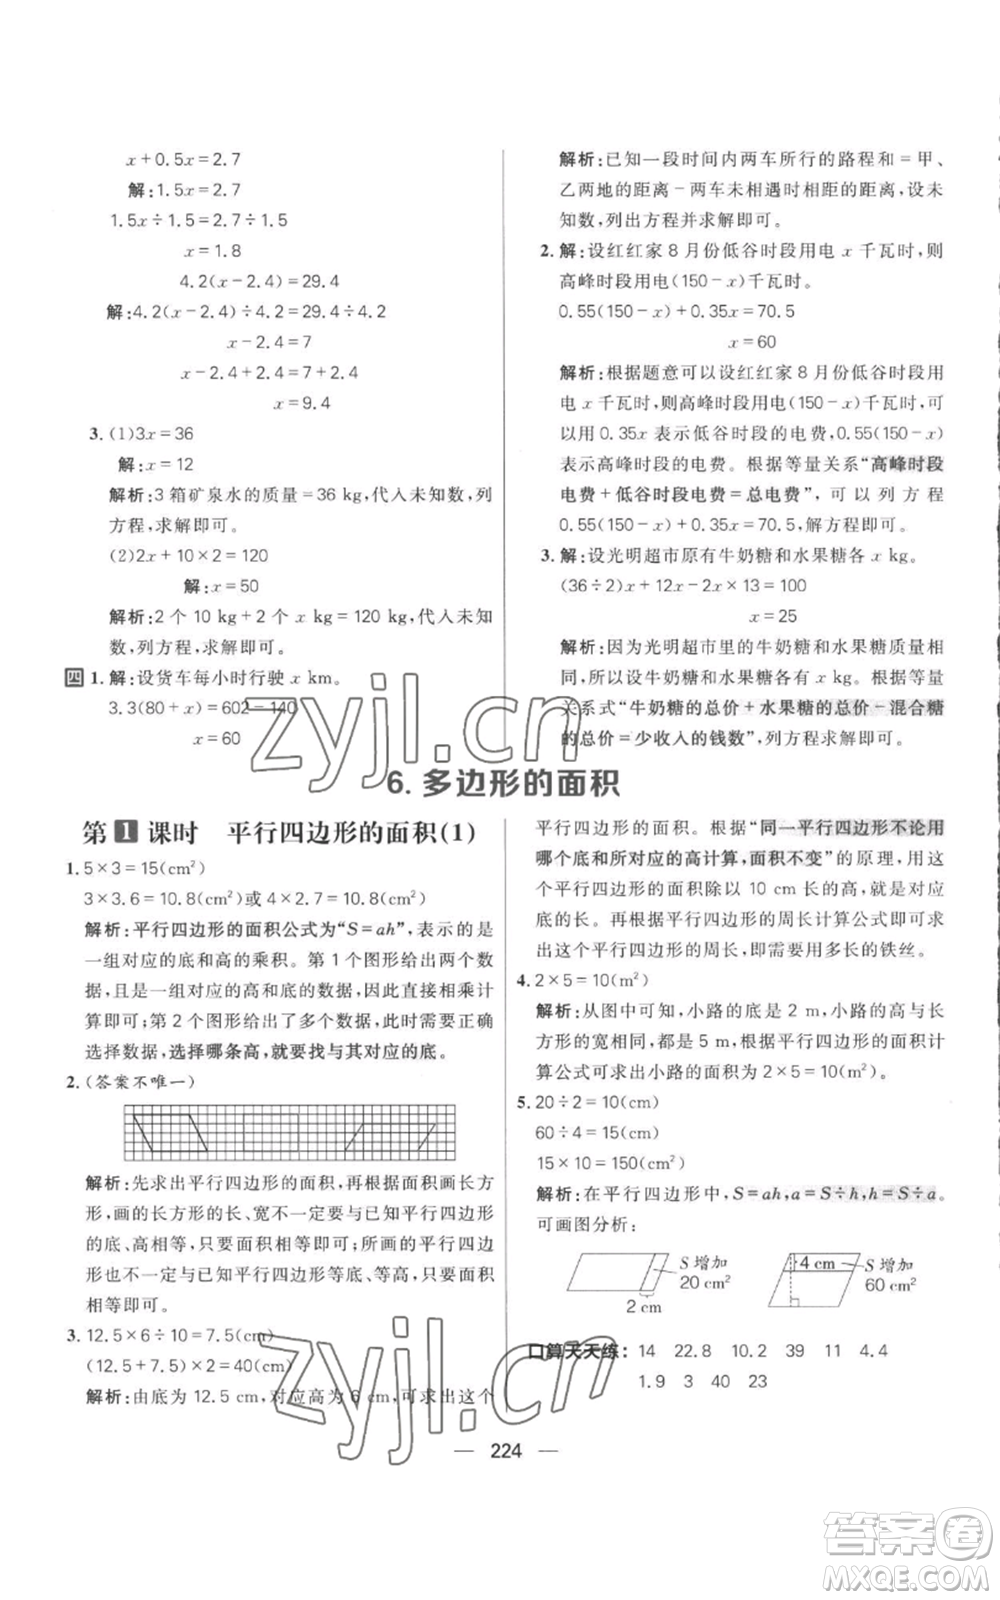 x+0.5x=2.7
解:1.5x=2.7
1.5x÷1.5=2.7÷1.5
x=1.8
4.2(x-2.4)=29.4
解:4.2(x-2.4)÷4.2=29.4÷4.2
x-2.4=7
x-2.4+2.4=7+2.4
x=9.4
3. (1)3x=36
解:x=12
解析:3 箱矿泉水的质量=36 kg,代入未知数,列
方程,求解即可。
(2)2x+10×2=120
解:x=50
解析:2 个 10 kg+2 个 x kg=120 kg,代入未知
数,列方程,求解即可。
四 1. 解:设货车每小时行驶 x km。
3.3(80+x)=602-140
x=60
解析:已知一段时间内两车所行的路程和=甲、
乙两地的距离-两车未相遇时相距的距离,设未
知数,列出方程并求解即可。
2. 解:设红红家 8 月份低谷时段用电 x 千瓦时,则
高峰时段用电(150-x)千瓦时。
0.55(150-x)+0.35x=70.5
x=60
解析:根据题意可以设红红家 8 月份低谷时段用
电 x 千瓦时,则高峰时段用电(150-x)千瓦时,可
以用 0.35x 表示低谷时段的电费,0.55(150-x)
表示高峰时段的电费。根据等量关系“高峰时段
电费+低谷时段电费=总电费”,可以列方程
0.55(150-x)+0.35x=70.5,解方程即可。
3. 解:设光明超市原有牛奶糖和水果糖各 x kg。
(36÷2)x+12x-2x×13=100
x=25
解析:因为光明超市里的牛奶糖和水果糖质量相
同,所以设牛奶糖和水果糖各有 x kg。根据等量
关系式“牛奶糖的总价+水果糖的总价-混合糖
的总价=少收入的钱数”,列方程求解即可。
6. 多边形的面积
第1课时 平行四边形的面积(1)
1. 5×3=15(cm²)
3×3.6=10.8(cm²)或 4×2.7=10.8(cm²)
解析:平行四边形的面积公式为“S=ah”,指的是
一组对应的底和高的乘积。第 1 个图形给出两个数
据,且是一组对应的高和底的数据,因此直接相乘计
算即可;第 2 个图形给出了多个数据,此时需要正确
选择数据,选择哪条高,就要找与其对应的底。
2. (答案不唯一)
解析:先求出平行四边形的面积,再根据面积画长方
形,画的长方形的长、宽不一定要与已知平行四边形
的底、高相等,只要面积相等即可;所画的平行四边
形也不一定与已知平行四边形等底、等高,只要面积
相等即可。
3. 12.5×6÷10=7.5(cm)
(12.5+7.5)×2=40(cm)
解析:由底为 12.5 cm,对应高为 6 cm,可求出这个
平行四边形的面积。根据“同一平行四边形不论用
哪个底和所对应的高计算,面积不变”的原理,用这
个平行四边形的面积除以 10 cm 长的高,就是对应
底的长。再根据平行四边形的周长计算公式即可求
出这个平行四边形的周长,即需要用多长的铁丝。
4. 2×5=10(m²)
解析:从图中可知,小路的底是 2 m,小路的高与长
方形的宽相同,都是 5 m,根据平行四边形的面积计
算公式可求出小路的面积为 2×5=10(m²)。
5. 20÷2=10(cm)
60÷4=15(cm)
15×10=150(cm²)
解析:在平行四边形中,S=ah,a=S÷h,h=S÷a。
可画图分析:
S 增加
20 cm²
2 cm
4 cm
S 增加
60 cm²
口算天天练: 14 22.8 10.2 39 11 4.4
1.9 3 40 23
224
zyjl.cn
zyjl.cn
答案卷
MXQE.COM